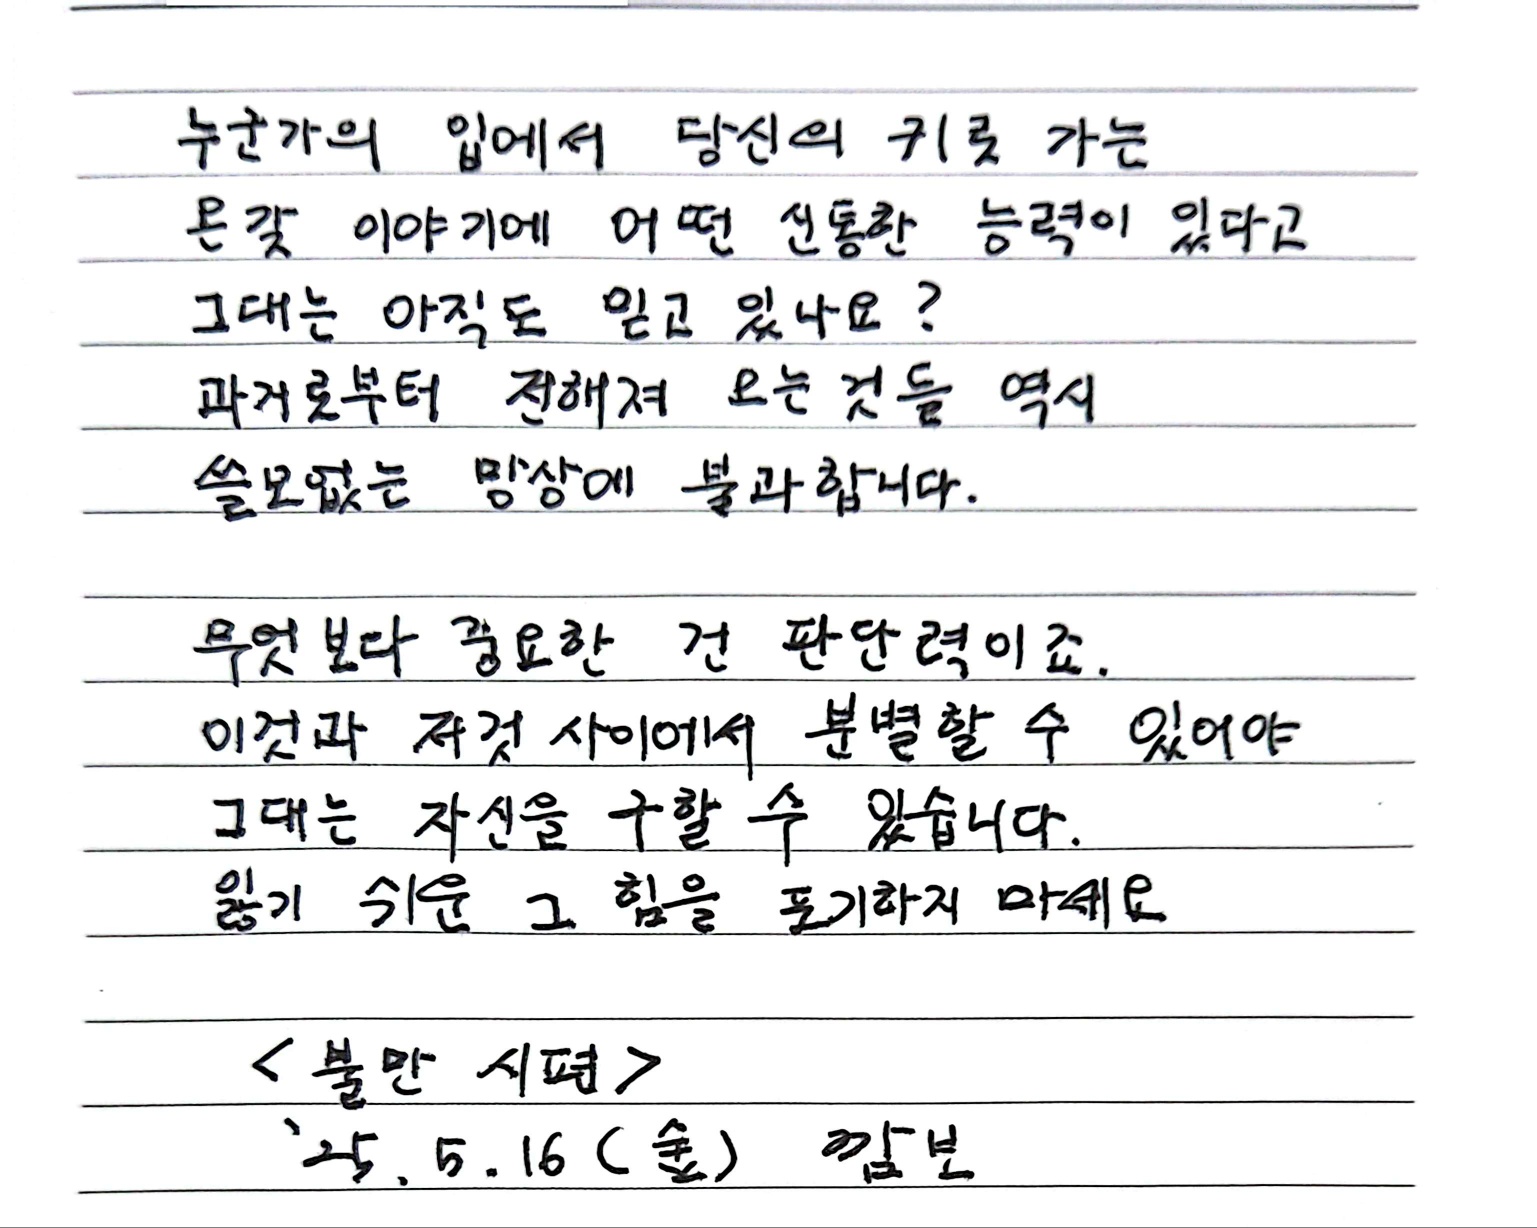 누군가의 입에서 당신의 귀로 가는
온갖 이야기에 어떤 신통한 능력이 있다고
그대는 아직도 믿고 있나요?
과거로부터 전해져 오는 것들 역시
쓸모없는 망상에 불과합니다.
무엇보다 중요한 건 판단력이죠.
이것과 저것 사이에서 분별할 수 있어야
그대는 자신을 구할 수 있습니다.
잃기 쉬운 그 힘을 포기하지 마세요
<불만 시편>
'25. 5. 16 (金) 깜보